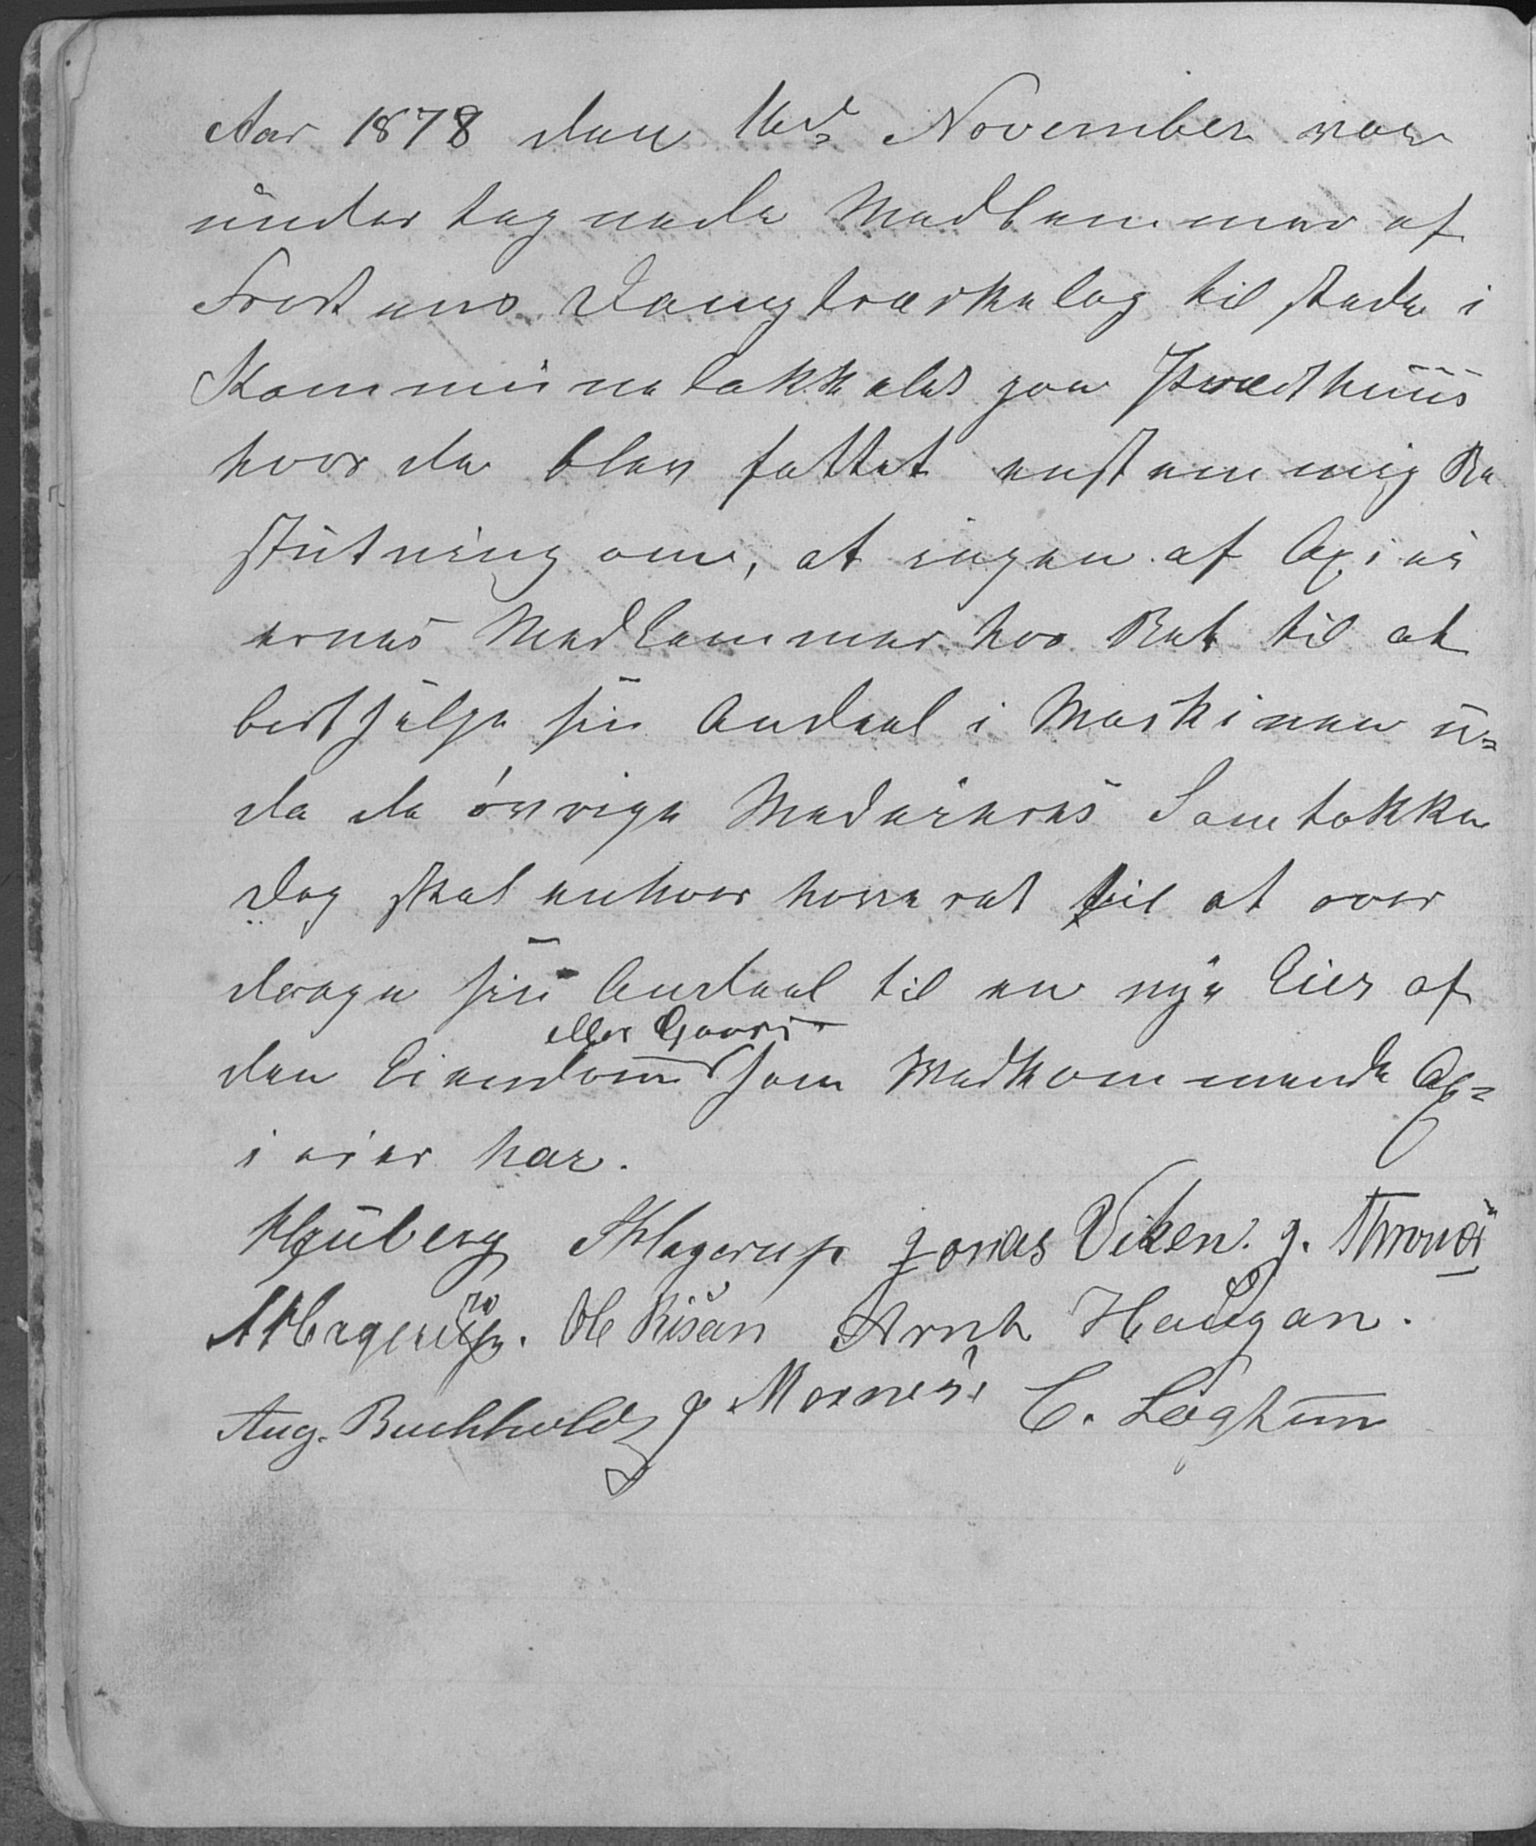 Aar 1878 den 16d November var
undertegnede Medlemmer af
Frostens Damptræskelag til stede i
Kommunelokkalet paa Præsthuus
hvor der blev fattet enstemmig Be
slutning om, at ingen af Axiei
ernes Medlemmer har Ret til at
bortsælge sin Andeel i Maskinen u=
den de øvrige Medeieres Samtøkke
Dog skal enhver have ret til at over
drage sin Andeel til en nye Eier af
eller Gaard
den Eiendom som Vedkommende Ax=
ieier har.
Hjuberg S Hagerup Jonas Viken. J.
A Hagerup. Ole Risan Arnt Haugan.
Aug. Buchholdt J Mornes C. Løgtun